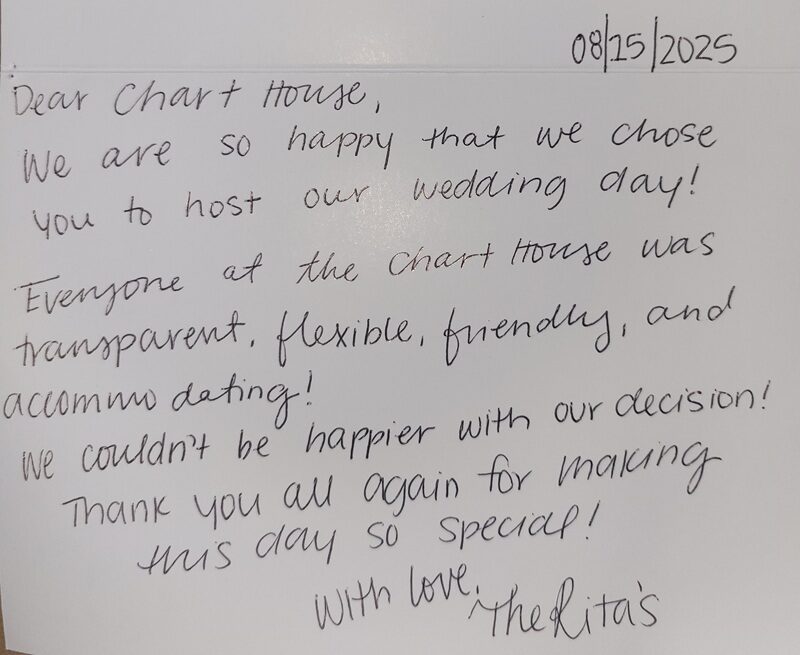 08/15/2025
Dear Chart House,
We are so happy that we chose
you to host our wedding day!
Everyone at the Chart House was
transparent, flexible, friendly, and
accommodating!
We couldn't be happier with our decision!
Thank you all again for making
this day so special!
With love,
The Rita's